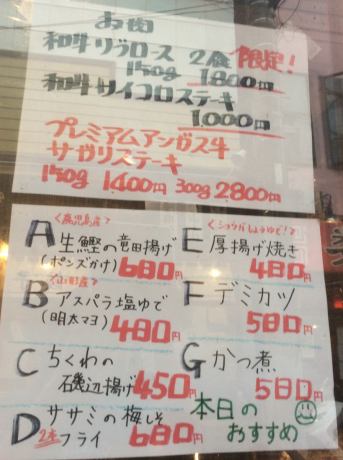 お肉
和牛リブロース 2食限定!
150g 1800円
和牛サイコロステーキ
1,000円
プレミアムアンガス牛
サガリステーキ
150g 1400円 300g 2800円
<鹿児島産>
A 生鰹の竜田揚げ
(ポンズがけ) 680円
<山田産>
B アスパラ塩ゆで
(明太マヨ) 480円
C ちくわの
磯辺揚げ 450円
D ササミの梅しそ
2本 フライ 680円
<ショウガしょうゆで!>
E 厚揚げ焼き
480円
F デミカツ
580円
G かつ煮
580円
本日の
おすすめ